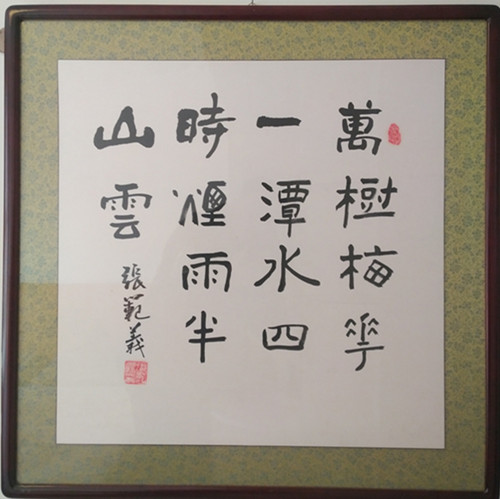 萬樹梅花
一潭水四
時煙雨半
山雲
張範義